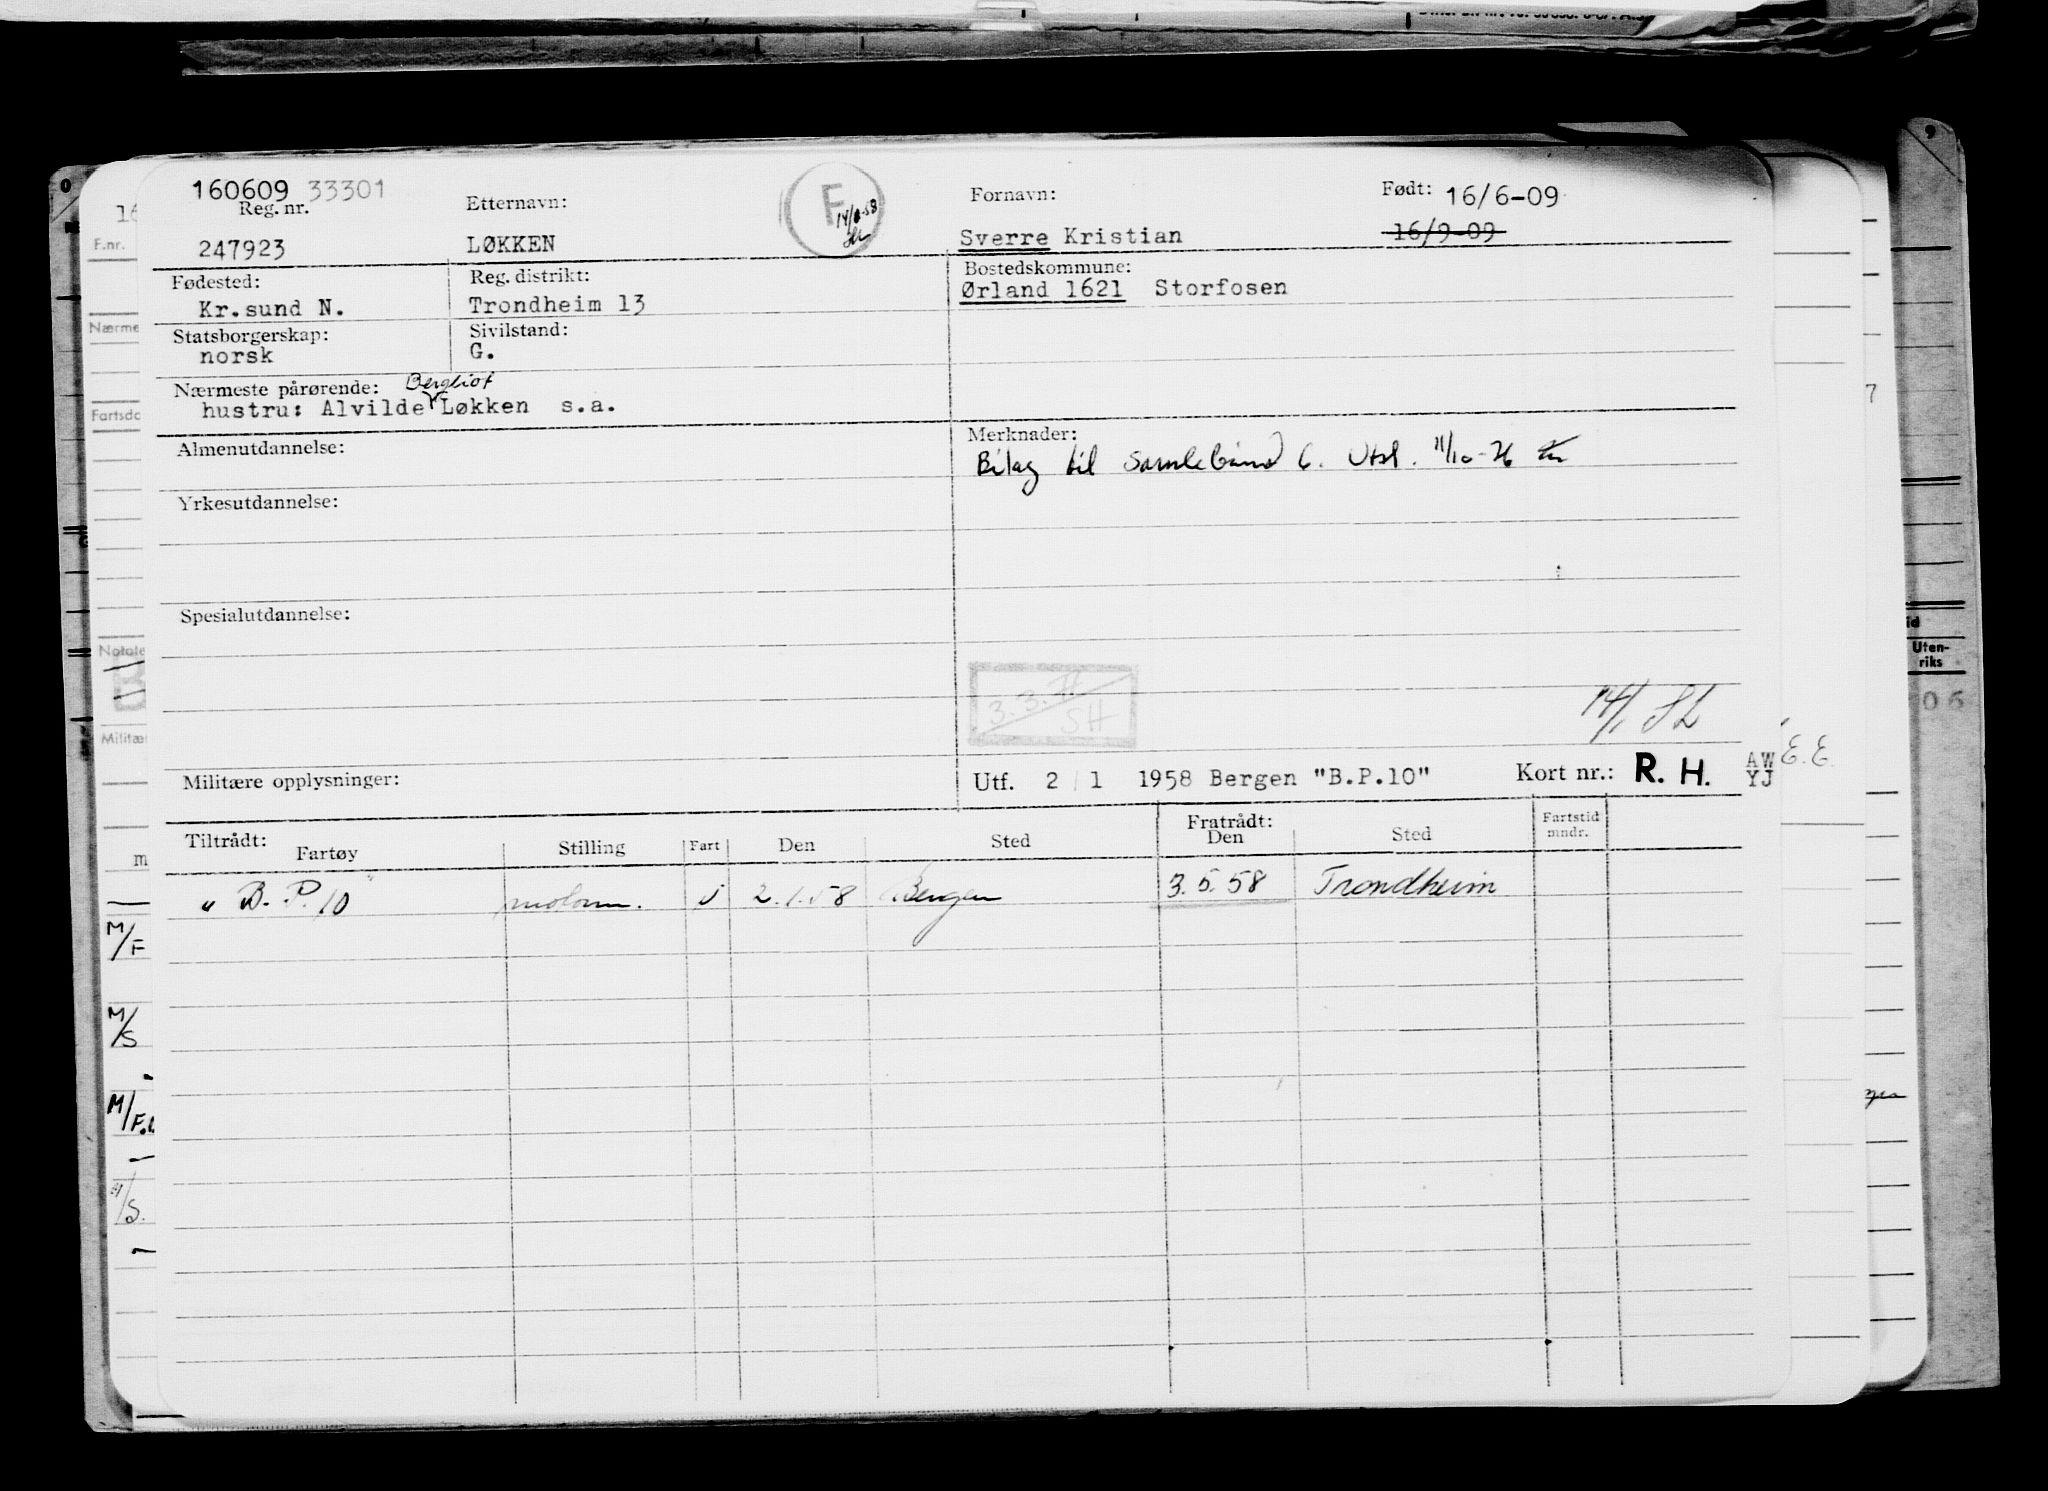 160609 33301
Reg. nr.
247923
Etternavn:
LØKKEN
F
Fornavn:
Sverre Kristian
Født: 16/6-09
16/9-09
Fødested:
Kr.sund N.
Reg. distrikt:
Trondheim 13
Bostedskommune:
Ørland 1621 Storfosen
Statsborgerskap:
norsk
Sivilstand:
G.
Nærmeste pårørende: Bergliot
hustru: Alvilde Løkken s.a.
Almenutdannelse:
Merknader:
Bilag til Samlebind 6. Utst. 11/10-76
Yrkesutdannelse:
Spesialutdannelse:
3.3.
SH
14/1
Militære opplysninger:
Utf. 2/1 1958 Bergen "B.P.10" Kort nr.: R. H.
AW
YJ
E.E.
Tiltrådt:
Fartøy Stilling Fart Den Sted
Fratrådt:
Den Sted
Fartstid
mndr.
"B. P. 10" motorm. i 2.1.58 Bergen 3.5.58 Trondheim
F.nr.
Nærme
Fartsdo
Notate
Militæ
M/F
M/S
M/F.
M/S.
Uten-
riks
06
7
9